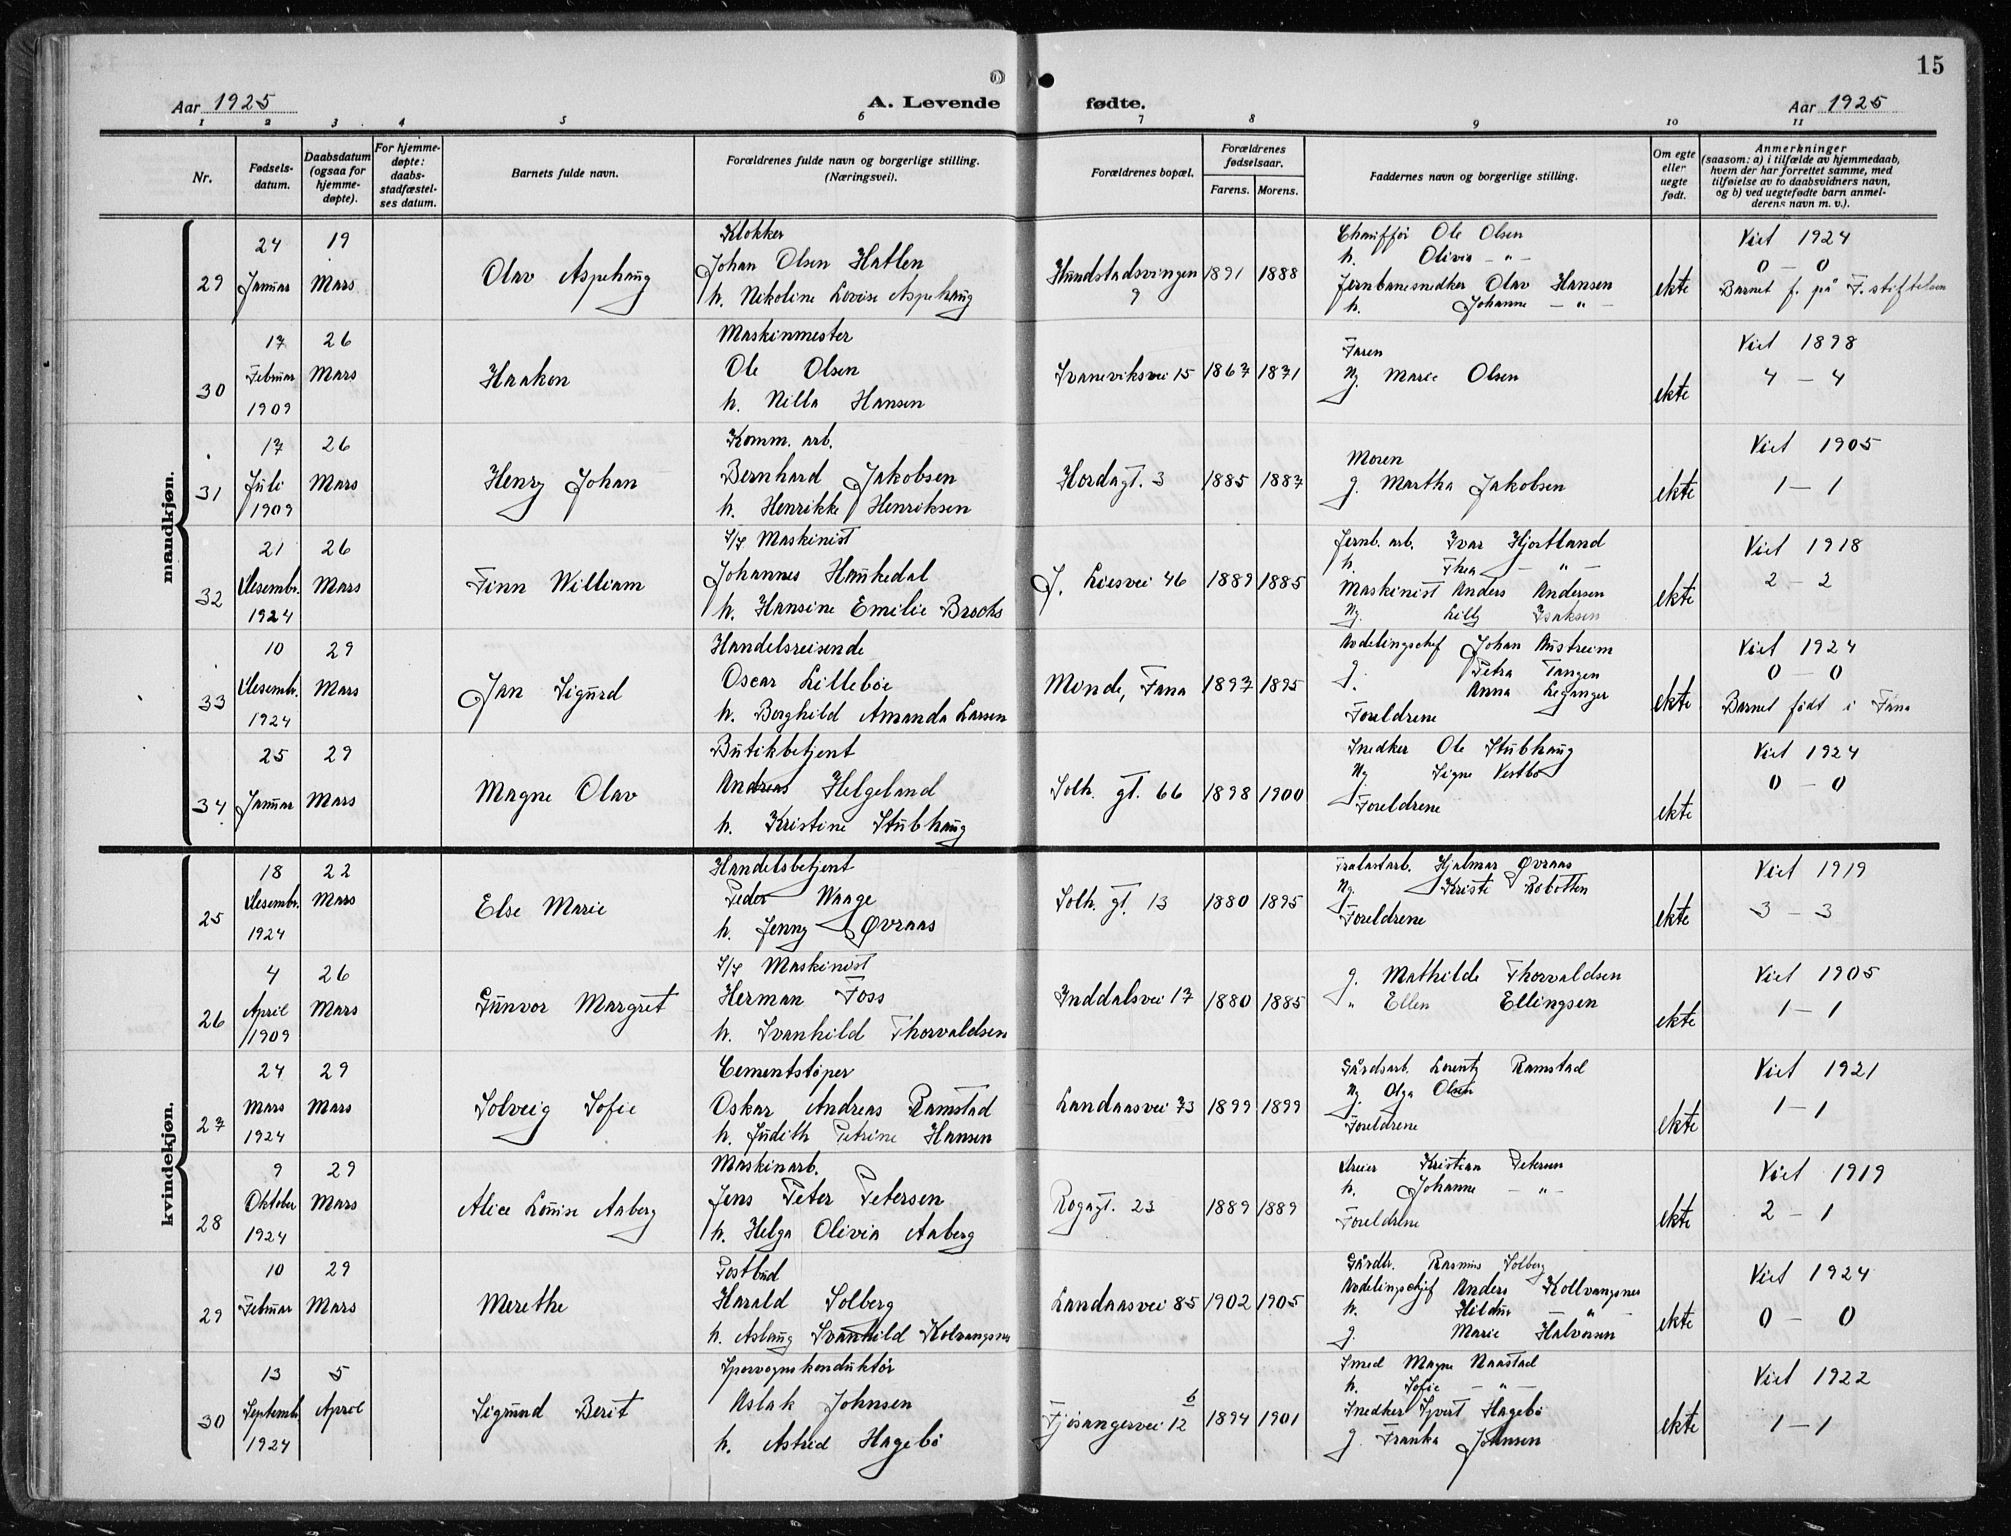 15
Aar 1925
A. Levende fødte.
Aar 1925
1 2 3 4 5 6 7 8 9 10 11
Nr.
Fødsels-
datum.
Daabsdatum
(ogsaa for
hjemme-
døpte).
For hjemme-
døpte:
daabs-
stadfæstel-
ses datum.
Barnets fulde navn.
Forældrenes fulde navn og borgerlige stilling.
(Næringsvei).
Forældrenes bopæl.
Forældrenes
fødselsaar.
Farens. Morens.
Faddernes navn og borgerlige stilling.
Om egte
eller
uegte
født.
Anmerkninger
(saasom: a) i tilfælde av hjemmedaab,
hvem der har forrettet samme, med
tilføielse av to daabsvidners navn,
og b) ved uegtefødte barn anmel-
derens navn m. v.).
mandkjøn.
29
24
Januar
19
Mars
Olav Aspehaug
Klokker
Johan Olsen Hatlen
h. Nikoline Lovise Aspehaug
Hundstadsvingen
9
1891 1888
Chauffør Ole Olsen
h. Olivia - " -
Jernbanesnedker Olav Hansen
h. Johanne - " -
ekte
Viet 1924
0 - 0
Barnet f. på F. stiftelsen
30
17
Februar
1909
26
Mars
Haakon
Maskinmester
Ole Olsen
h. Nilla Hansen
Svaneviksvei 15
1867 1871
Faren
Ug. Marie Olsen
ekte
Viet 1898
4 - 4
31
17
Juli
1909
26
Mars
Henry Johan
Komm. arb.
Bernhard Jakobsen
h. Henrikke Henriksen
Hordagt. 3
1885 1887
Moren
g. Martha Jakobsen
ekte
Viet 1905
1 - 1
32
21
Desembr.
1924
26
Mars
Finn William
S/S Maskinist
Johannes Haukedal
h. Hansine Emilie Brochs
J. Liesvei 46
1889 1885
Jernb. arb. Ivar Hjortland
h. Thea - " -
Maskinist Anders Andersen
Ug. Lilly Isaksen
ekte
Viet 1918
2 - 2
33
10
Desembr.
1924
29
Mars
Jan Sigurd
Handelsreisende
Oscar Lillebøe
h. Borghild Amanda Larsen
Minde, Fana
1897 1895
Avdelingschef Johan Austreim
g. Petra Tangen
g. Anna Leganger
Foreldrene
ekte
Viet 1924
0 - 0
Barnet født i Fana
34
25
Januar
29
Mars
Magne Olav
Butikbetjent
Andreas Helgeland
h. Kristine Stubhaug
Solh. gt. 66
1898 1900
Snedker Ole Stubhaug
Ug. Signe Vestbø
Foreldrene
ekte
Viet 1924
0 - 0
kvindekjøn.
25
18
Desembr.
1924
22
Mars
Else Marie
Handelsbetjent
Peder Waage
h. Jenny Øvraas
Solh. gt. 13
1880 1895
Hjalmar Øvraas
Ug. Kristi Robotten
Foreldrene
ekte
Viet 1919
3 - 3
26
4
April
1909
26
Mars
Gunvor Margret
S/S Maskinist
Herman Foss
h. Svanhild Thorvaldsen
Inddalsvei 17
1880 1885
g. Mathilde Thorvaldsen
" Ellen Ellingsen
ekte
Viet 1905
1 - 1
27
24
Mars
1924
29
Mars
Solveig Sofie
Cementstøper
Oskar Andreas Ramstad
h. Judith Petrine Hansen
Landaasvei 73
1899 1899
Gårdsarb. Lorentz Ramstad
Ug. Olga Olsen
Foreldrene
ekte
Viet 1921
1 - 1
28
9
Oktober
1924
29
Mars
Alice Louise Aaberg
Maskinarb.
Jens Peter Petersen
h. Helga Olivia Aaberg
Rogagt. 23
1889 1889
Dreier Kristian Petersen
h. Johanne - " -
Foreldrene
ekte
Viet 1919
2 - 1
29
10
Februar
29
Mars
Merethe
Postbud
Harald Solberg
h. Aslaug Svanhild Kolvangsnes
Landaasvei 85
1902 1905
Gårdbr. Rasmus Solberg
Avdelingschef Anders Kollvangsnes
h. Hildur - " -
g. Marie Halvorsen
ekte
Viet 1924
0 - 0
30
13
Septembr.
1924
5
April
Sigmund Berit
Sporvognskonduktør
Aslak Johnsen
h. Astrid Hagebø
Fjøsangervei 12 b
1894 1901
Smed Magne Naastad
h. Sofie - " -
Snedker Syvert Hagebø
g. Franka Johnsen
ekte
Viet 1922
1 - 1